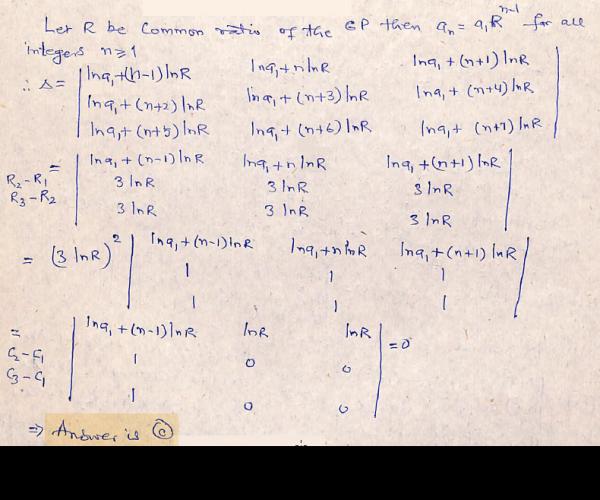 Let R be Common ratio of the GP then aₙ = a₁Rⁿ⁻¹ for all
integers n ≥ 1
∴ Δ = | ln a₁ + (n-1) ln R   ln a₁ + n ln R   ln a₁ + (n+1) ln R |
| ln a₁ + (n+2) ln R   ln a₁ + (n+3) ln R   ln a₁ + (n+4) ln R |
| ln a₁ + (n+5) ln R   ln a₁ + (n+6) ln R   ln a₁ + (n+7) ln R |
= | ln a₁ + (n-1) ln R   ln a₁ + n ln R   ln a₁ + (n+1) ln R |
R₂-R₁ | 3 ln R   3 ln R   3 ln R |
R₃-R₂ | 3 ln R   3 ln R   3 ln R |
= (3 ln R)² | ln a₁ + (n-1) ln R   ln a₁ + n ln R   ln a₁ + (n+1) ln R |
| 1   1   1 |
| 1   1   1 |
= | ln a₁ + (n-1) ln R   ln R   ln R | = 0
C₂-C₁ | 1   0   0 |
C₃-C₁ | 1   0   0 |
⇒ Answer is ⓒ